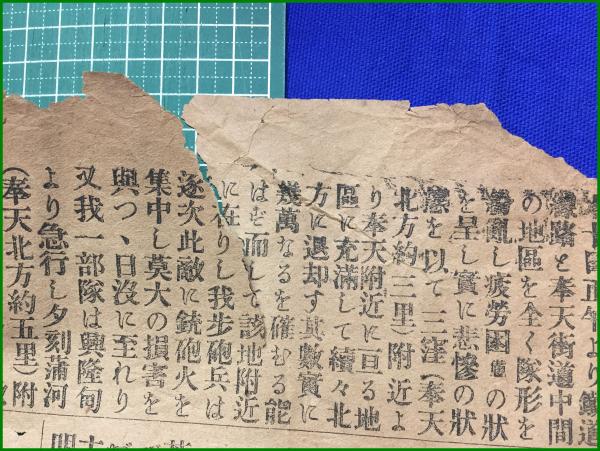 十日正午より鐵道
線路と奉天街道中間
の地區を全く隊形を
亂し疲勞困憊の狀
を呈し實に悲慘の狀
を以て三窪(奉天
北方約三里)附近よ
り奉天附近に亘る地
區に充滿して續々北
方に退却す其數實に
幾萬なるを確むる能
はず而して該地附近
に在りし我步砲兵は
逐次此敵に銃砲火を
集中し莫大の損害を
與つヽ日沒に至れり
又我一部隊は興隆甸
より急行し夕刻蒲河
(奉天北方約五里)附